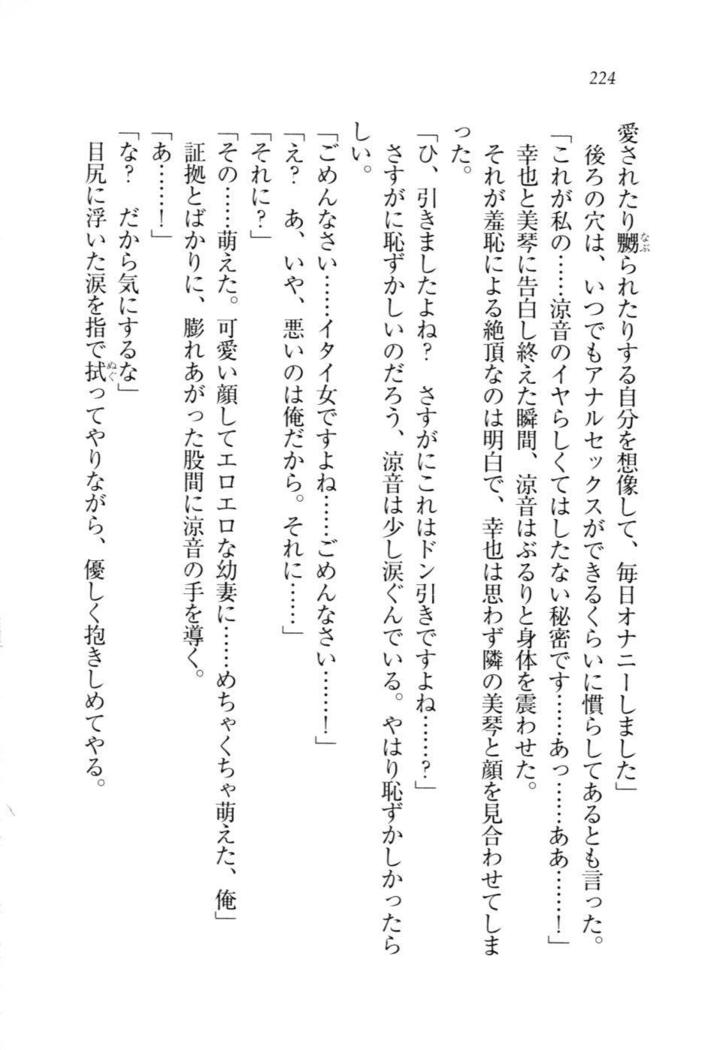 224
愛されたり嬲られたりする自分を想像して、毎日オナニーしました」
後ろの穴は、いつでもアナルセックスができるくらいに慣らしてあるとも言った。
「これが私の……涼音のイヤらしくてはしたない秘密です……あっ……ああ……！」
幸也と美琴に告白し終えた瞬間、涼音はぶるりと身体を震わせた。
それが羞恥による絶頂なのは明白で、幸也は思わず隣の美琴と顔を見合わせてしま
った。
「ひ、引きましたよね？　さすがにこれはドン引きですよね……？」
さすがに恥ずかしいのだろう、涼音は少し涙ぐんでいる。やはり恥ずかしかったら
しい。
「ごめんなさい……イタイ女ですよね……ごめんなさい……！」
「え？　あ、いや、悪いのは俺だから。それに……」
「それに？」
「その……萌えた。可愛い顔してエロエロな幼妻に……めちゃくちゃ萌えた、俺」
証拠とばかりに、膨れあがった股間に涼音の手を導く。
「あ……！」
「な？　だから気にするな」
目尻に浮いた涙を指で拭ってやりながら、優しく抱きしめてやる。